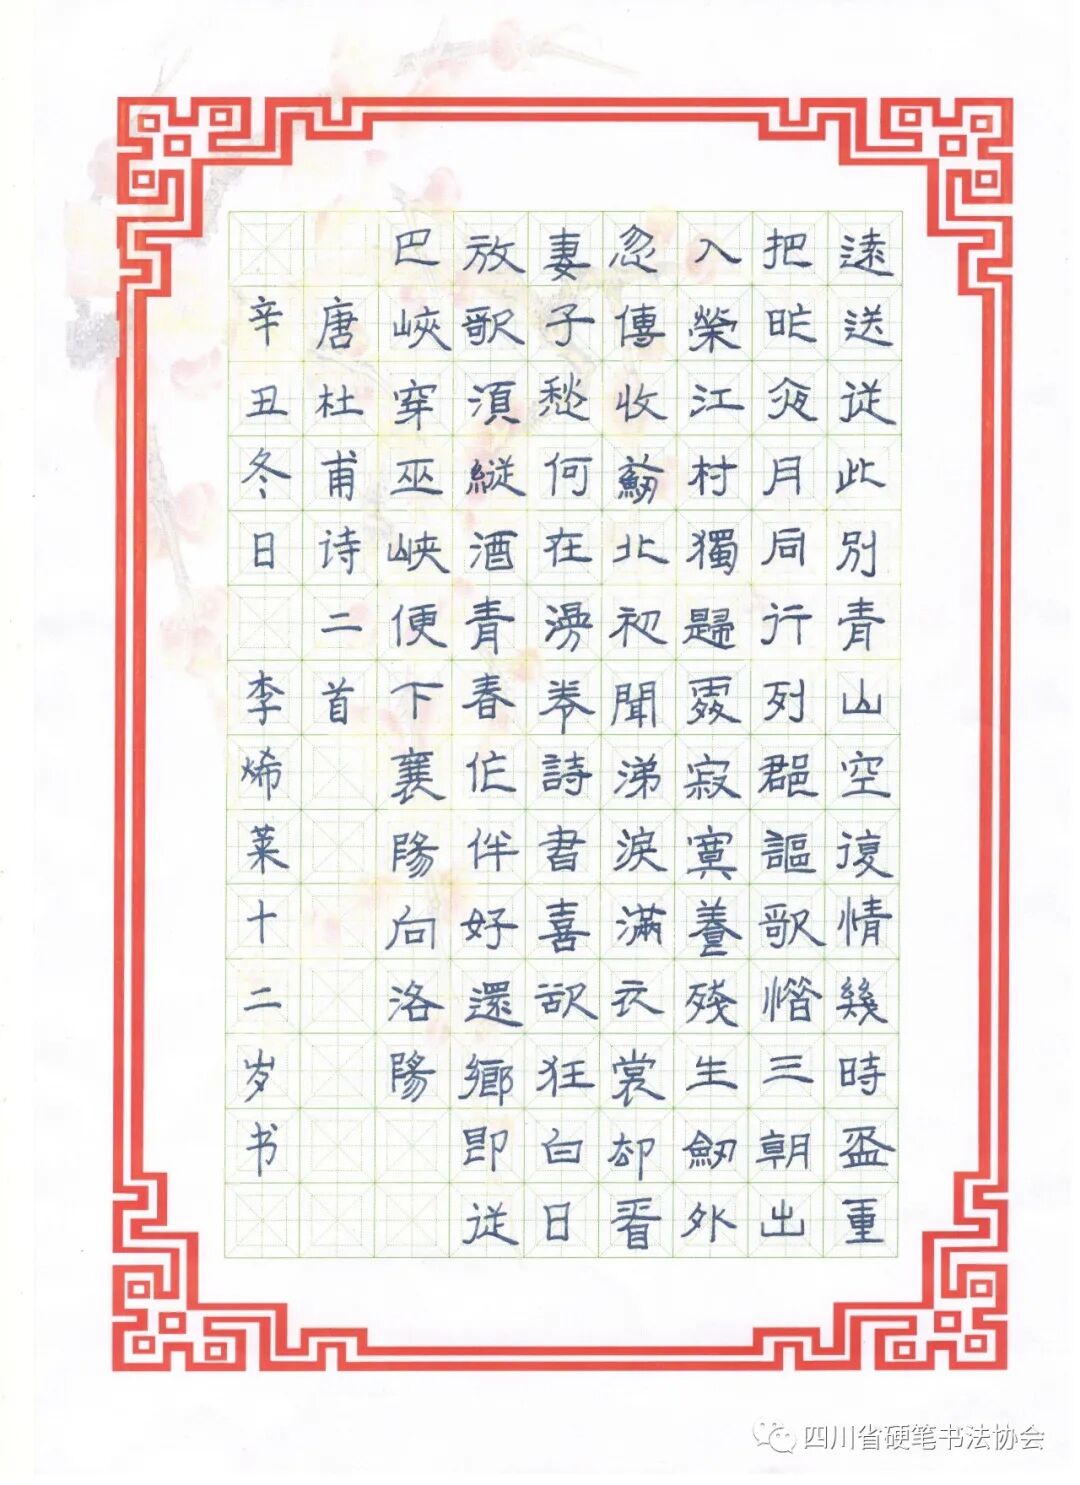 遠送従此別青山空復情幾時盃重
把昨夜月同行列郡謳歌惜三朝出
入榮江村獨歸處寂寞養殘生劒外
忽傳收薊北初聞涕淚滿衣裳却看
妻子愁何在漫卷詩書喜欲狂白日
放歌須縦酒青春作伴好還鄉即従
巴峽穿巫峽便下襄陽向洛陽
唐杜甫诗二首
辛丑冬日 李烯莱十二岁书
四川省硬笔书法协会